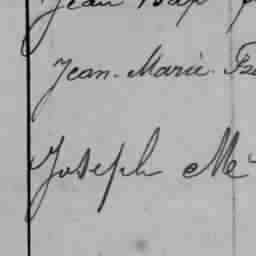 Jean Bap
Jean-Marie
Joseph